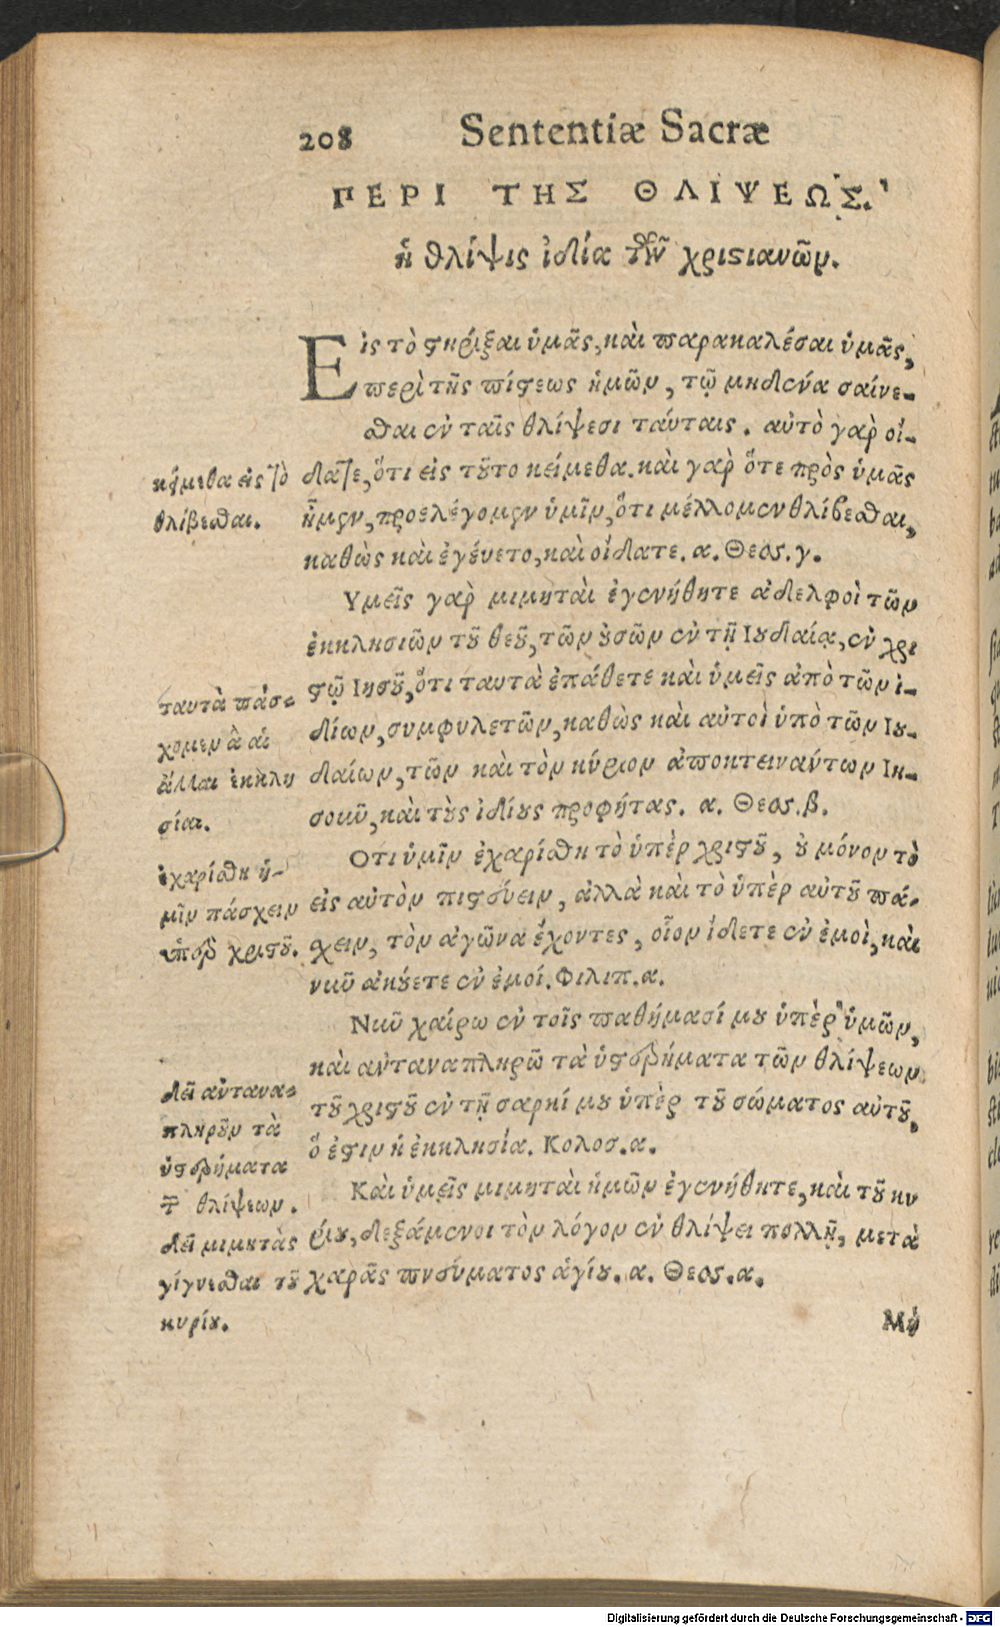 208 Sententiæ Sacræ
ΠΕΡΙ ΤΗΣ ΘΛΙΨΕΩΣ.
ἡ θλίψις ἰδία τῶν χριστιανῶν.
Εἰς τὸ στηρίξαι ὑμᾶς, καὶ παρακαλέσαι ὑμᾶς,
περὶ τῆς πίστεως ἡμῶν, τῷ μηδένα σαίνε-
σθαι ἐν ταῖς θλίψεσι ταύταις. αὐτὸ γὰρ οἴ-
κείμεθα εἰς τὸ
θλίβεσθαι.
δατε, ὅτι εἰς τοῦτο κείμεθα. καὶ γὰρ ὅτε πρὸς ὑμᾶς
ἦμεν, προελέγομεν ὑμῖν, ὅτι μέλλομεν θλίβεσθαι,
καθὼς καὶ ἐγένετο, καὶ οἴδατε. α. Θεσς. γ.
Υμεῖς γὰρ μιμηταὶ ἐγενήθητε ἀδελφοὶ τῶν
ἐκκλησιῶν τοῦ θεοῦ, τῶν οὐσῶν ἐν τῇ Ιουδαίᾳ, ἐν χρι
ταυτὰ πάσ-
χομεν ἃ αἱ
ἄλλαι ἐκκλη
σίαι.
στῷ Ιησοῦ, ὅτι ταυτὰ ἐπάθετε καὶ ὑμεῖς ἀπὸ τῶν ἰ-
δίων, συμφυλετῶν, καθὼς καὶ αὐτοὶ ὑπὸ τῶν Ιου-
δαίων, τῶν καὶ τὸν κύριον ἀποκτεινάντων Ιη-
σοῦν, καὶ τοὺς ἰδίους προφήτας. α. Θεσς. β.
ἐχαρίσθη ἡ-
μῖν πάσχειν
ὑπὲρ χριστοῦ.
Οτι ὑμῖν ἐχαρίσθη τὸ ὑπὲρ χριστοῦ, οὐ μόνον τὸ
εἰς αὐτὸν πιστεύειν, ἀλλὰ καὶ τὸ ὑπὲρ αὐτοῦ πά-
σχειν, τὸν ἀγῶνα ἔχοντες, οἷον ἴδετε ἐν ἐμοὶ, καὶ
νῦν ἀκούετε ἐν ἐμοί. Φιλιπ. α.
Νῦν χαίρω ἐν τοῖς παθήμασί μου ὑπὲρ ὑμῶν,
καὶ ἀνταναπληρῶ τὰ ὑστερήματα τῶν θλίψεων
δεῖ ἀντανα-
πληροῦν τὰ
ὑστερήματα
τῶν θλίψεων.
τοῦ χριστοῦ ἐν τῇ σαρκί μου ὑπὲρ τοῦ σώματος αὐτοῦ,
ὅ ἐστιν ἡ ἐκκλησία. Κολοσ. α.
Καὶ ὑμεῖς μιμηταὶ ἡμῶν ἐγενήθητε, καὶ τοῦ κυ
δεῖ μιμητὰς
γίγνεσθαι τοῦ
κυρίου.
ρίου, δεξάμενοι τὸν λόγον ἐν θλίψει πολλῇ, μετὰ
χαρᾶς πνεύματος ἁγίου. α. Θεσς. α.
Digitalisierung gefördert durch die Deutsche Forschungsgemeinschaft - DFG